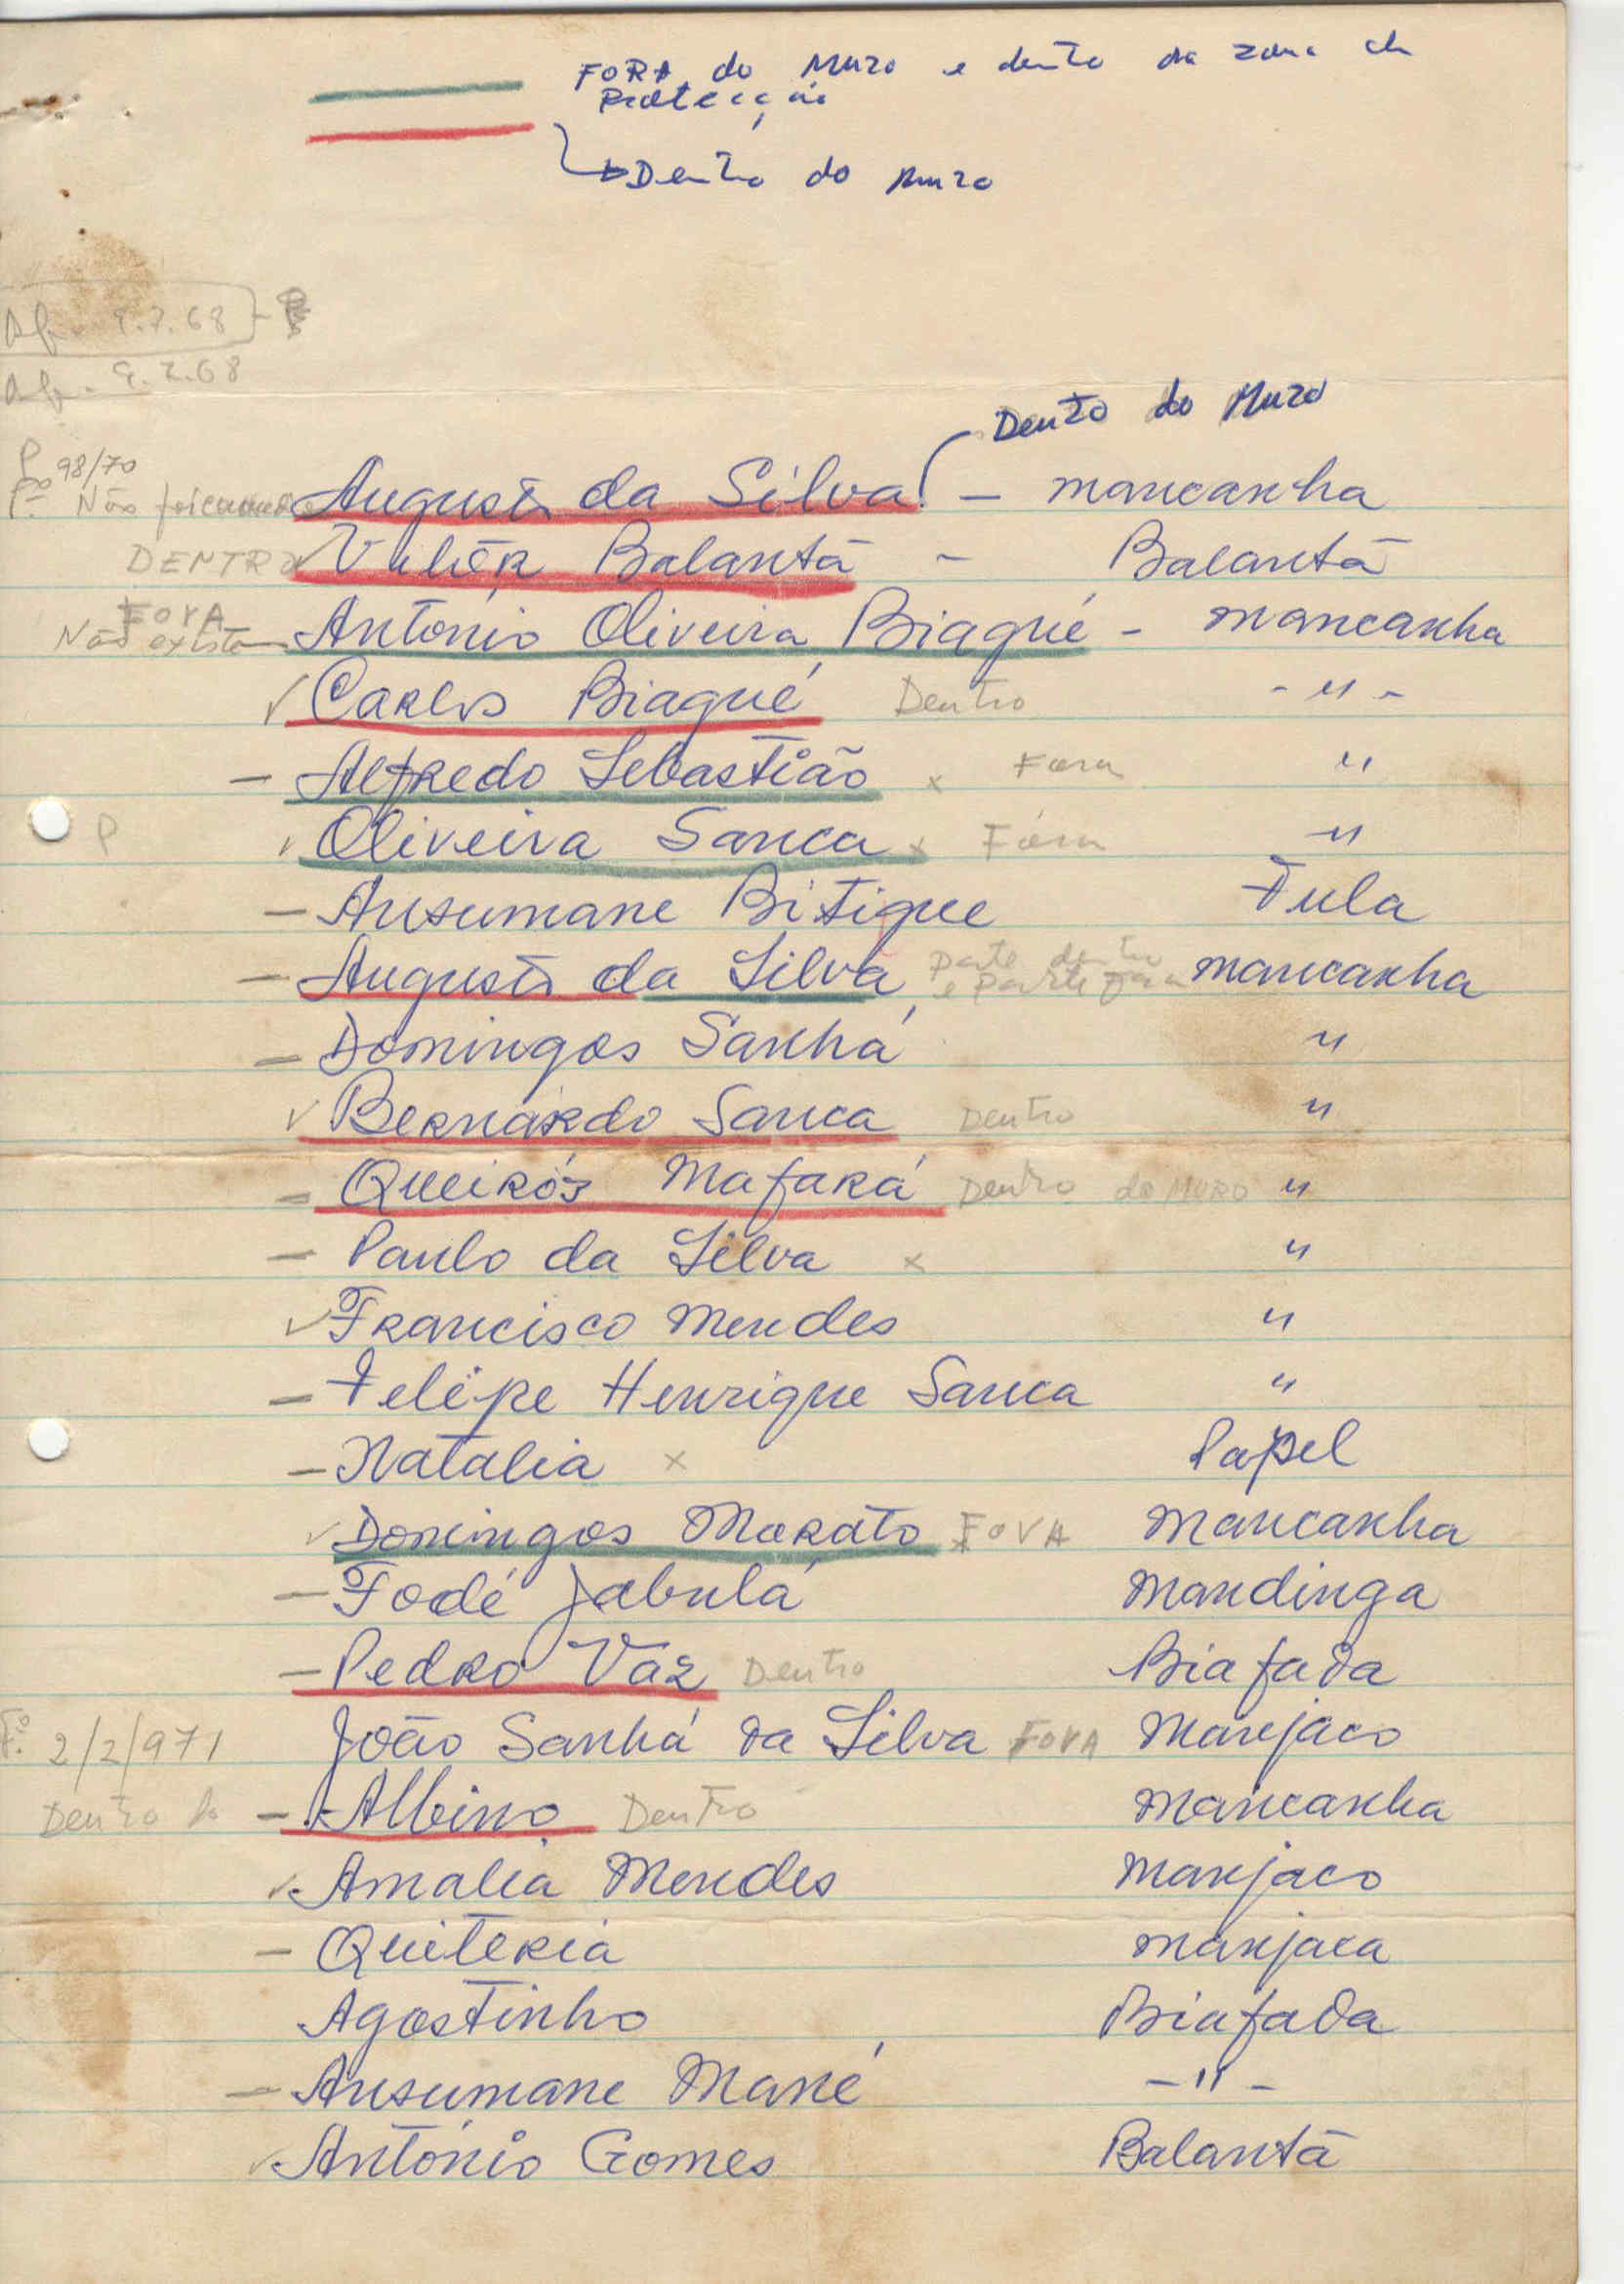 FORA do Muro e dentro da zona de
Protecção
Dentro do Muro
9.7.68
9.7.68
Dentro do Muro
98/70
Não
Augusto da Silva - mancanha
DENTRO
Balantã - Balantã
FORA
Não existe António Oliveira Biagué - mancanha
✓ Carlos Biagué Dentro - " -
- Alfredo Sebastião x Fora "
P ✓ Oliveira Sanca x Fóra - "
- Ansumane Bitique Fula
- Augusto da Silva parte dentro mancanha
e parte fora
- Domingos Sanhá "
✓ Bernardo Sanca Dentro "
- Queirós Mafará Dentro do MURO "
- Paulo da Silva x "
✓ Francisco Mendes "
- Felipe Henrique Sanca "
- Natalia x Papel
✓ Domingos Morato FORA Mancanha
- Fodé Jabulá Mandinga
- Pedro Vaz Dentro Biafada
2/2/971 João Sanhá da Silva FORA Manjaco
Dentro - Albino Dentro Mancanha
✓ Amalia Mendes Manjaco
- Quiteria Manjaca
Agostinho Biafada
- Ansumane Mané - " -
✓ António Gomes Balantã